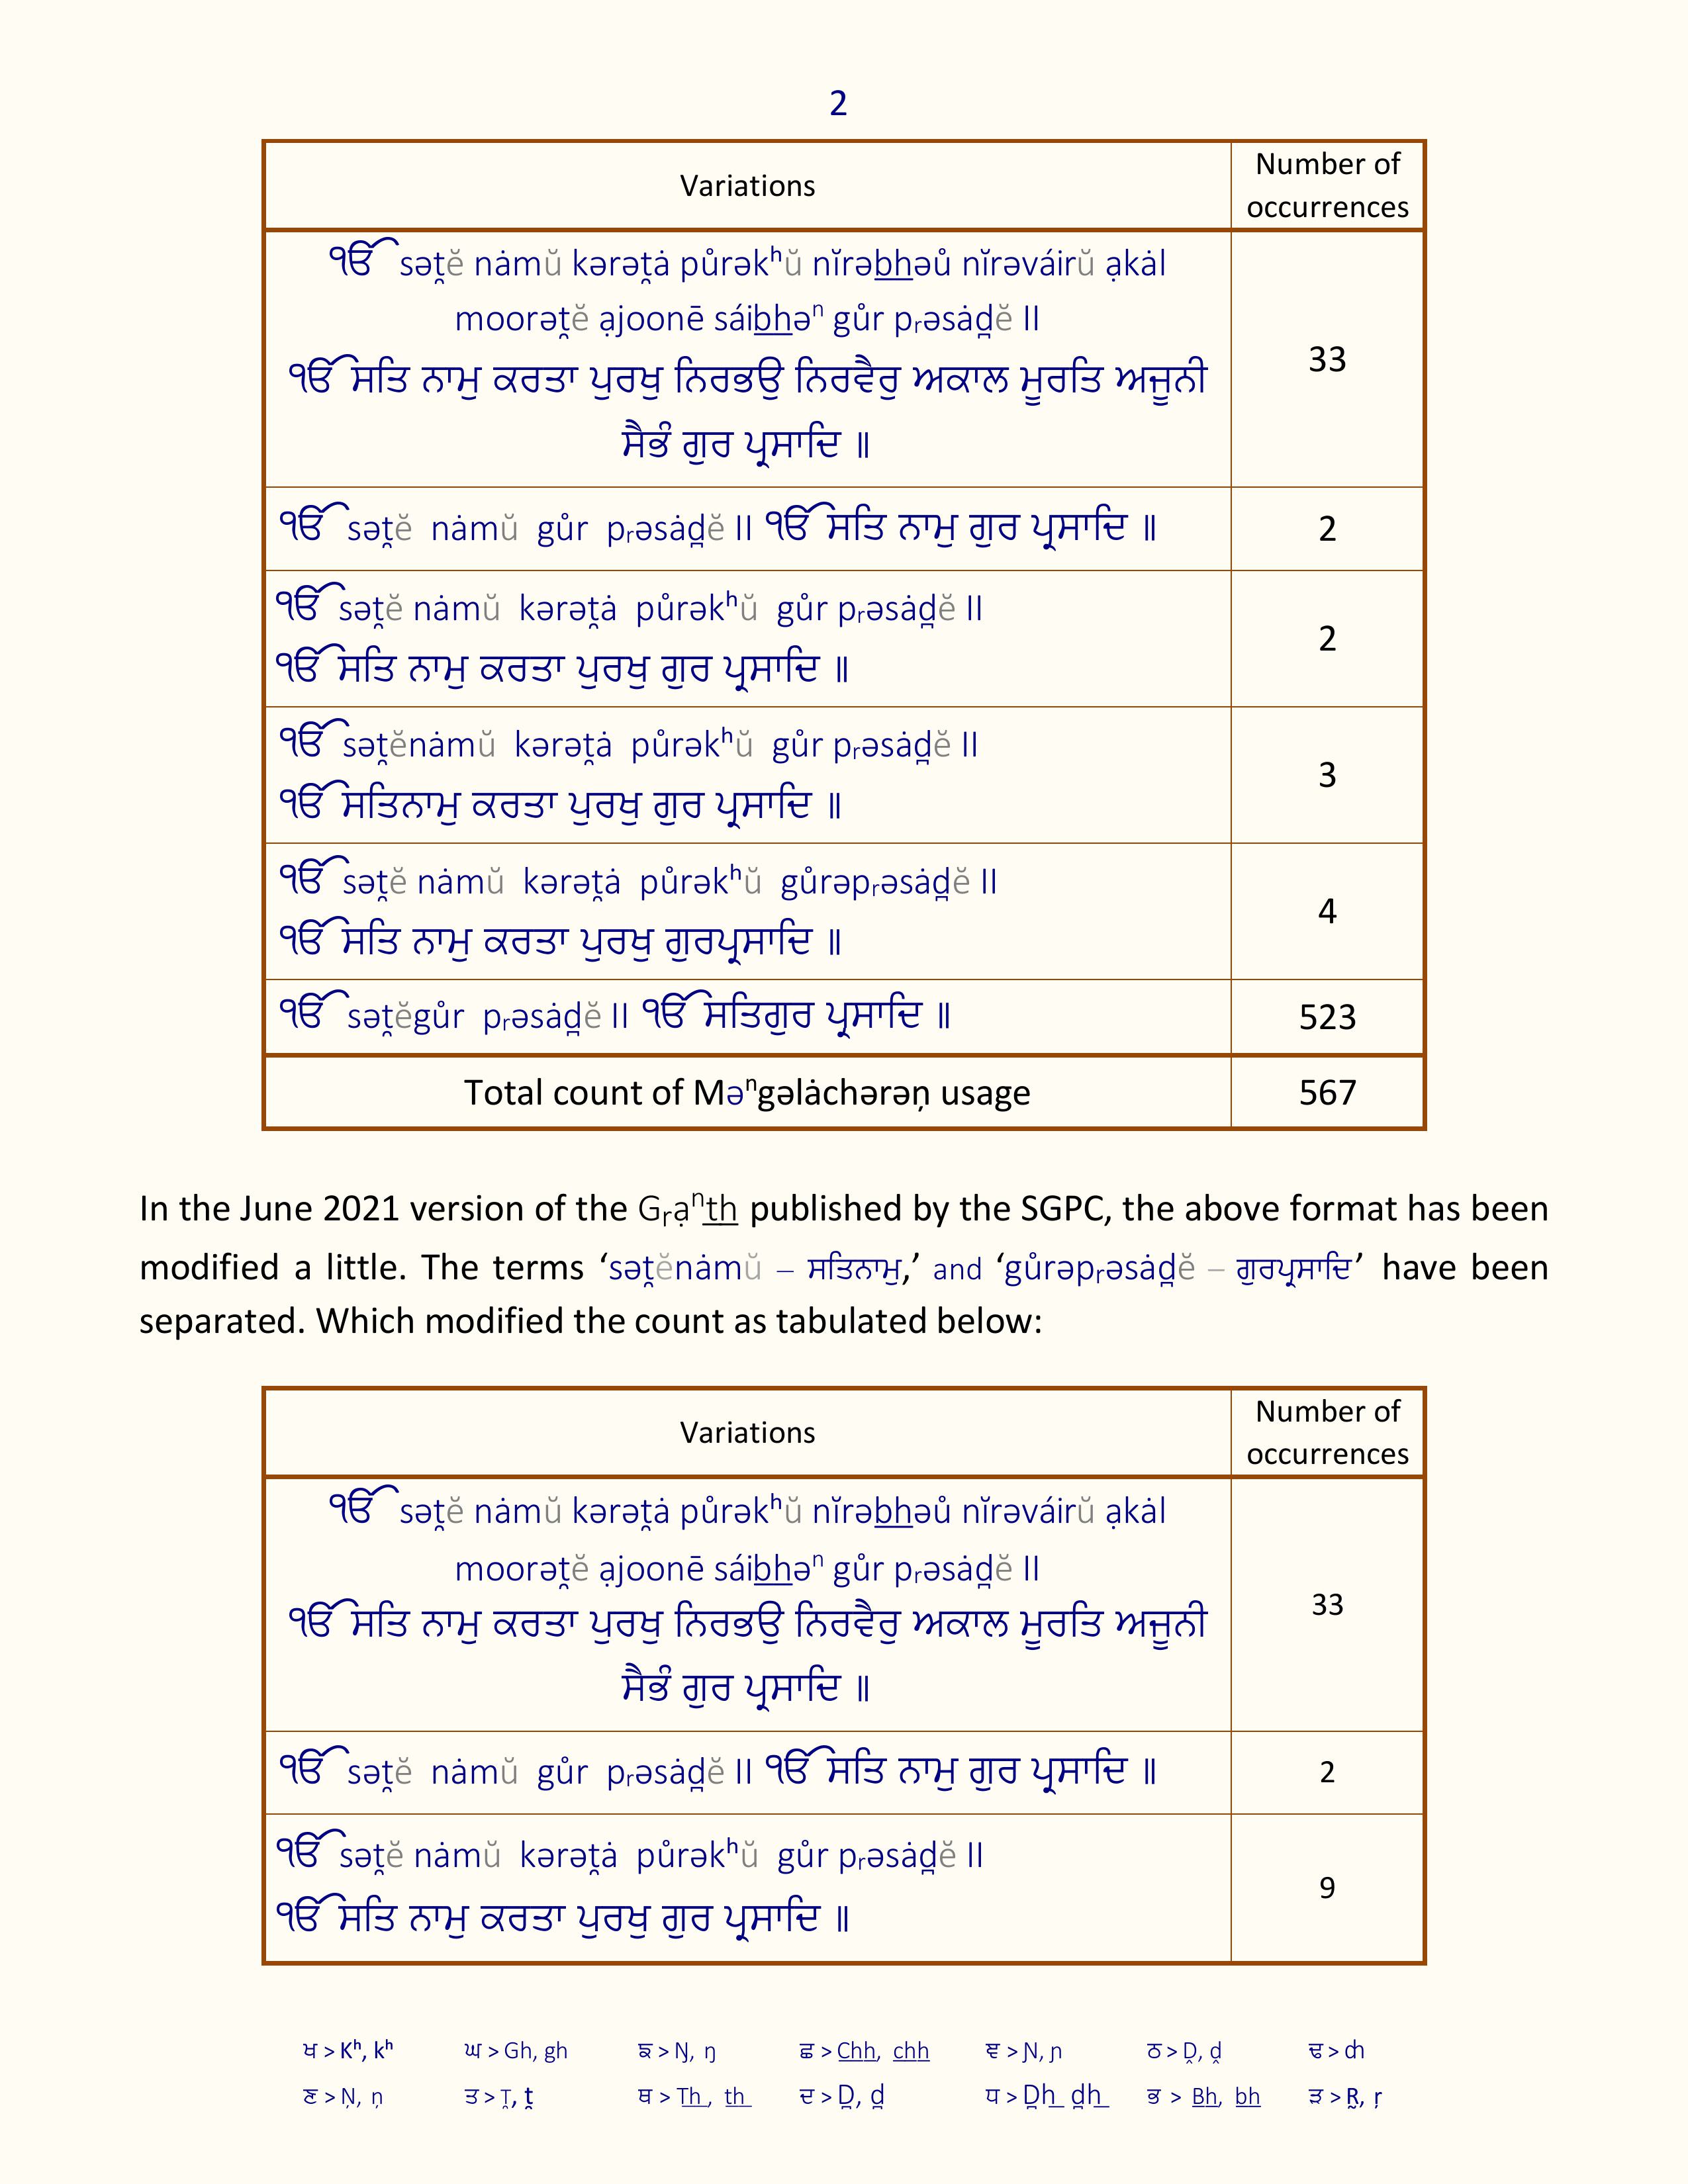 2
Variations
Number of
occurrences
ੴ sət̯ĕ nȧmŭ kərət̯ȧ půrəkʰŭ nĭrəb͟həů nĭrəváirŭ ạkȧl
moorət̯ĕ ạjoonē sáib͟həⁿ gůr pᵣəsȧd̯ĕ ll
ੴ ਸਤਿ ਨਾਮੁ ਕਰਤਾ ਪੁਰਖੁ ਨਿਰਭਉ ਨਿਰਵੈਰੁ ਅਕਾਲ ਮੂਰਤਿ ਅਜੂਨੀ
ਸੈਭੰ ਗੁਰ ਪ੍ਰਸਾਦਿ ॥
33
ੴ sət̯ĕ nȧmŭ gůr pᵣəsȧd̯ĕ ll ੴ ਸਤਿ ਨਾਮੁ ਗੁਰ ਪ੍ਰਸਾਦਿ ॥
2
ੴ sət̯ĕ nȧmŭ kərət̯ȧ půrəkʰŭ gůr pᵣəsȧd̯ĕ ll
ੴ ਸਤਿ ਨਾਮੁ ਕਰਤਾ ਪੁਰਖੁ ਗੁਰ ਪ੍ਰਸਾਦਿ ॥
2
ੴ sət̯ĕnȧmŭ kərət̯ȧ půrəkʰŭ gůr pᵣəsȧd̯ĕ ll
ੴ ਸਤਿਨਾਮੁ ਕਰਤਾ ਪੁਰਖੁ ਗੁਰ ਪ੍ਰਸਾਦਿ ॥
3
ੴ sət̯ĕ nȧmŭ kərət̯ȧ půrəkʰŭ gůrəpᵣəsȧd̯ĕ ll
ੴ ਸਤਿ ਨਾਮੁ ਕਰਤਾ ਪੁਰਖੁ ਗੁਰਪ੍ਰਸਾਦਿ ॥
4
ੴ sət̯ĕgůr pᵣəsȧd̯ĕ ll ੴ ਸਤਿਗੁਰ ਪ੍ਰਸਾਦਿ ॥
523
Total count of Məⁿgəlȧchərəṇ usage
567
In the June 2021 version of the Gᵣạⁿt͟h published by the SGPC, the above format has been
modified a little. The terms ‘sət̯ĕnȧmŭ – ਸਤਿਨਾਮੁ,’ and ‘gůrəpᵣəsȧd̯ĕ – ਗੁਰਪ੍ਰਸਾਦਿ’ have been
separated. Which modified the count as tabulated below:
Variations
Number of
occurrences
ੴ sət̯ĕ nȧmŭ kərət̯ȧ půrəkʰŭ nĭrəb͟həů nĭrəváirŭ ạkȧl
moorət̯ĕ ạjoonē sáib͟həⁿ gůr pᵣəsȧd̯ĕ ll
ੴ ਸਤਿ ਨਾਮੁ ਕਰਤਾ ਪੁਰਖੁ ਨਿਰਭਉ ਨਿਰਵੈਰੁ ਅਕਾਲ ਮੂਰਤਿ ਅਜੂਨੀ
ਸੈਭੰ ਗੁਰ ਪ੍ਰਸਾਦਿ ॥
33
ੴ sət̯ĕ nȧmŭ gůr pᵣəsȧd̯ĕ ll ੴ ਸਤਿ ਨਾਮੁ ਗੁਰ ਪ੍ਰਸਾਦਿ ॥
2
ੴ sət̯ĕ nȧmŭ kərət̯ȧ půrəkʰŭ gůr pᵣəsȧd̯ĕ ll
ੴ ਸਤਿ ਨਾਮੁ ਕਰਤਾ ਪੁਰਖੁ ਗੁਰ ਪ੍ਰਸਾਦਿ ॥
9
ਖ > Kʰ, kʰ ਘ > Gh, gh ਙ > Ŋ, ŋ ਛ > C͟h͟h, c͟h͟h ਞ > Ɲ, ɲ ਠ > Ḓ, ḓ ਢ > ȸ
ਣ > Ṇ, ṇ ਤ > T̯, t̯ ਥ > T͟h, t͟h ਦ > D̯, d̯ ਧ > D̯h͟ d̯h͟ ਭ > B͟h, b͟h ੜ > R̰, ṛ